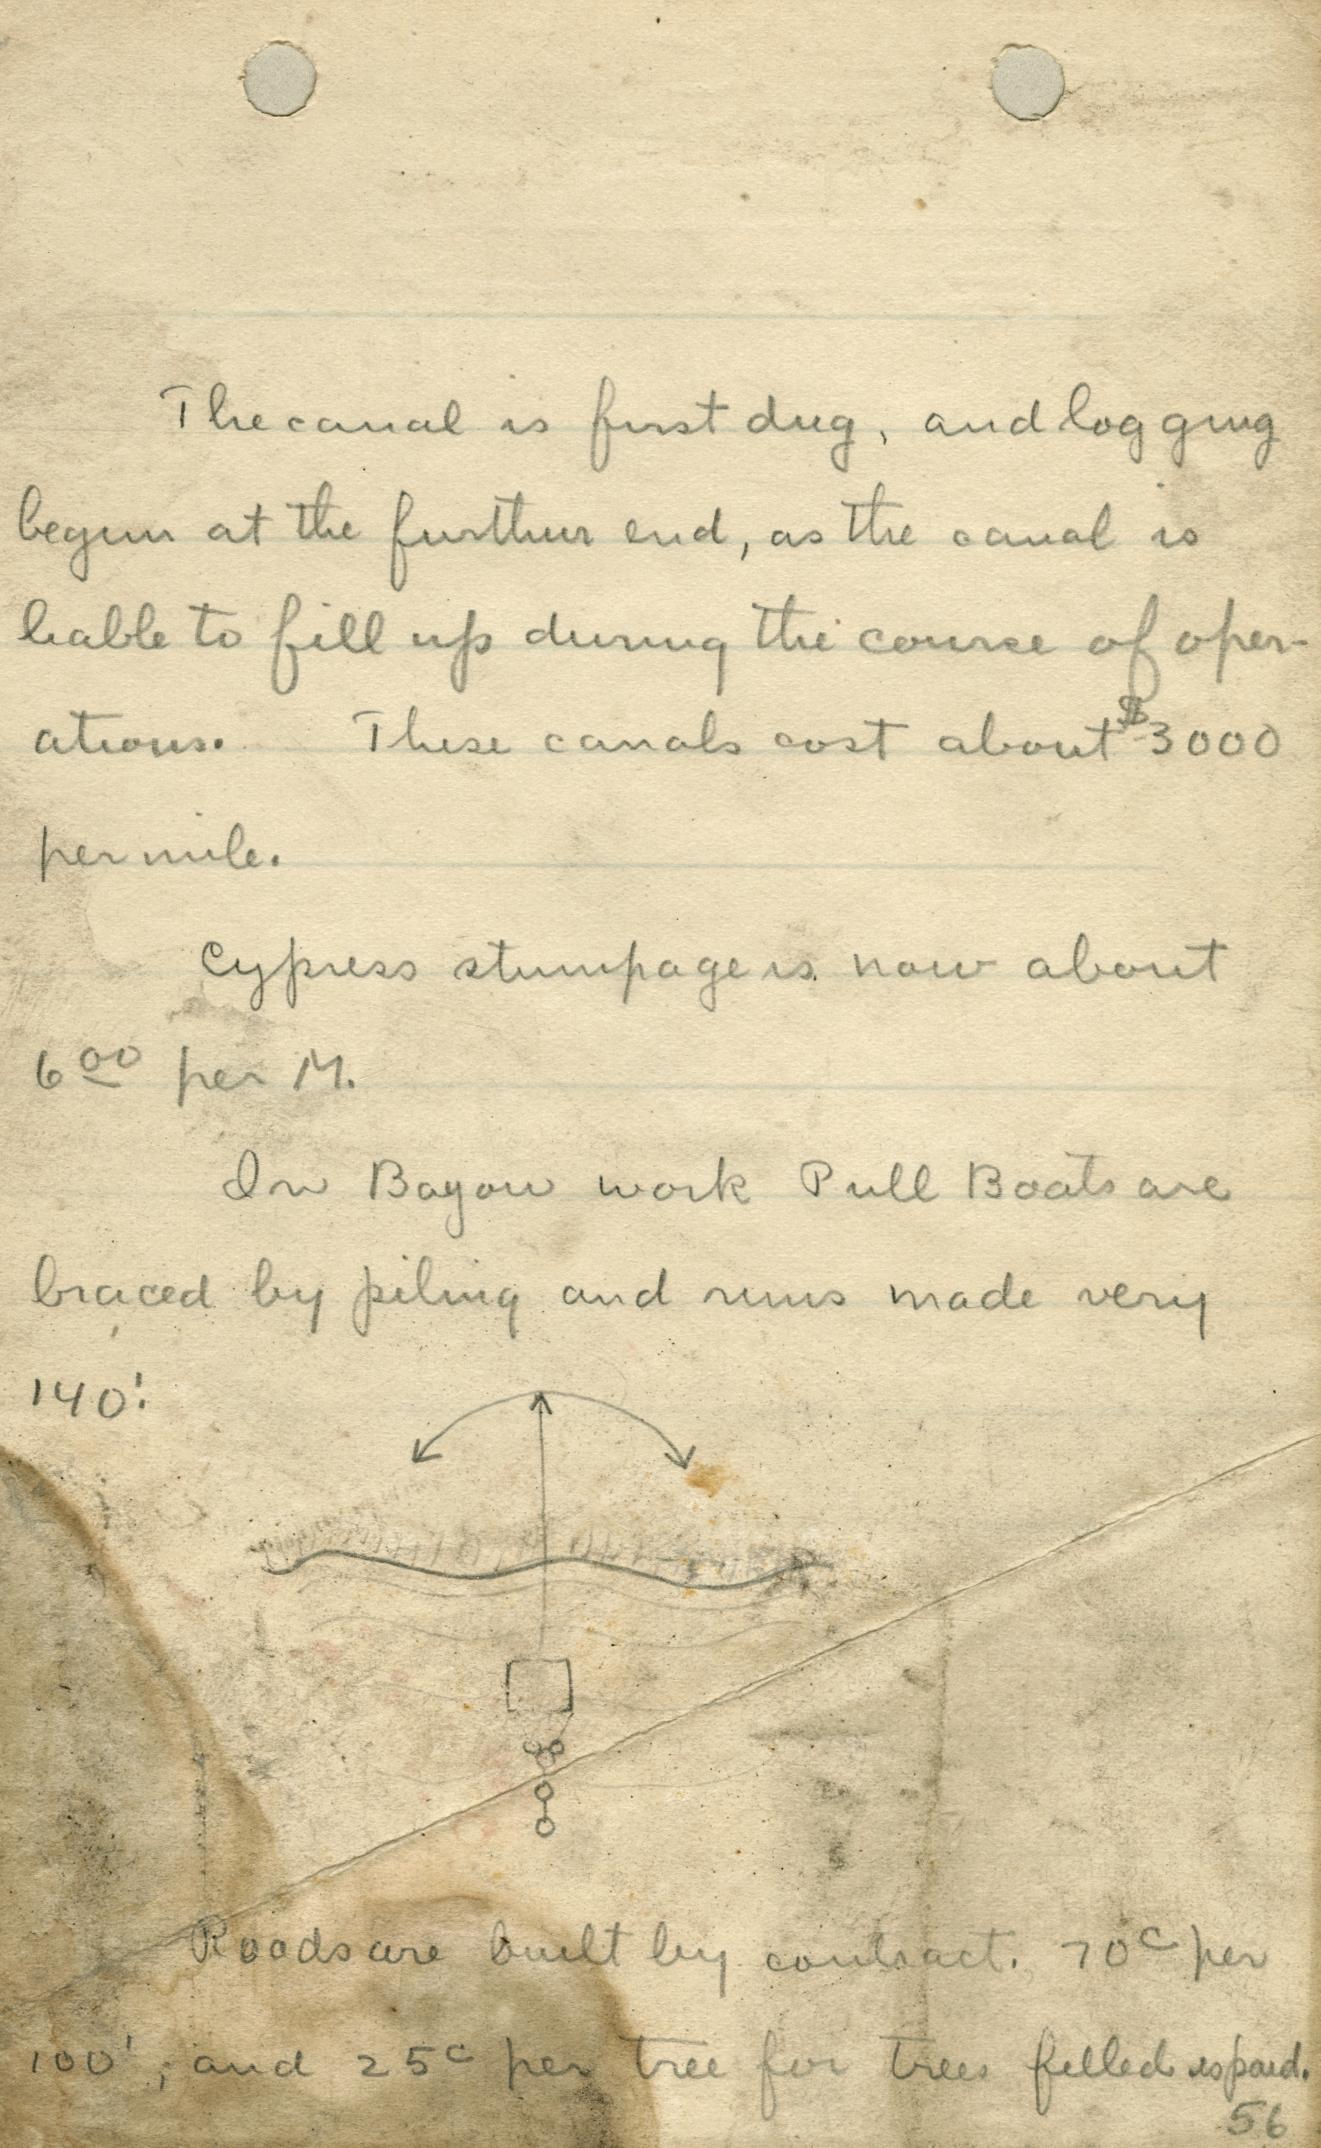 The canal is first dug, and logging
begun at the further end, as the canal is
liable to fill up during the course of oper-
ations. These canals cost about $3000
per mile.
Cypress stumpage is now about
6 00 per M.
In Bayou work Pull Boats are
braced by piling and runs made very
140'.
Roads are built by contract. 70c per
100'; and 25c per tree for trees felled is paid.
56